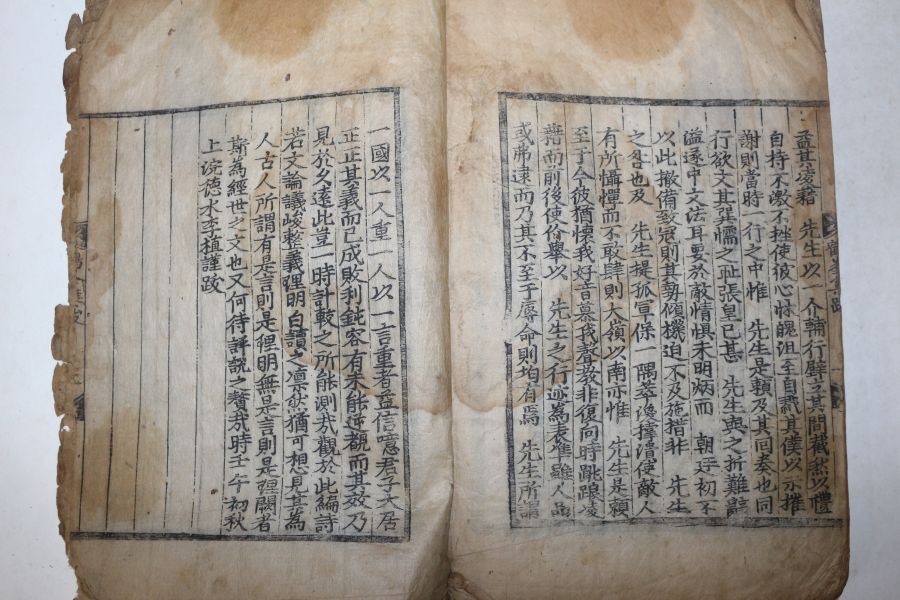 孟其凌藉 先生以一介輔行壁立其間截然以禮
自持不激不挫使彼心怵魄沮至自戮其僕以示摧
謝則當時一行之中惟 先生是賴及其同奏也同
行欲文其巽懦之恥張皇已甚 先生與之折難辭
溢遂中文法耳要於敵情惧未明炳而 朝廷初不
以此撤備致寇則其勢傾機迫不及施措非 先生
之咎也及 先生提孤軍保一隅萃渙撐潰使敵人
有所懾憚而不敢肆則大嶺以南亦惟 先生是賴
至于今彼猶懷我好音慕我聲教非復向時跳踉凌
藉而前後使价舉以 先生之行迹為表準雖人品
或弗逮而乃其不至于辱命則均有焉 先生所謂
一國以一人重一人以一言重者益信噫君子大居
正正其義而已成敗利鈍容有未能逆覩而其效乃
見於久遠此豈一時計較之所能測哉觀於此編詩
若文論議峻整義理明白讀之凛然猶可想見其為
人古人所謂有是言則是理明無是言則是理闕者
斯為經世之文也又何待評說之贅哉時壬午初秋
上浣德水李植謹跋